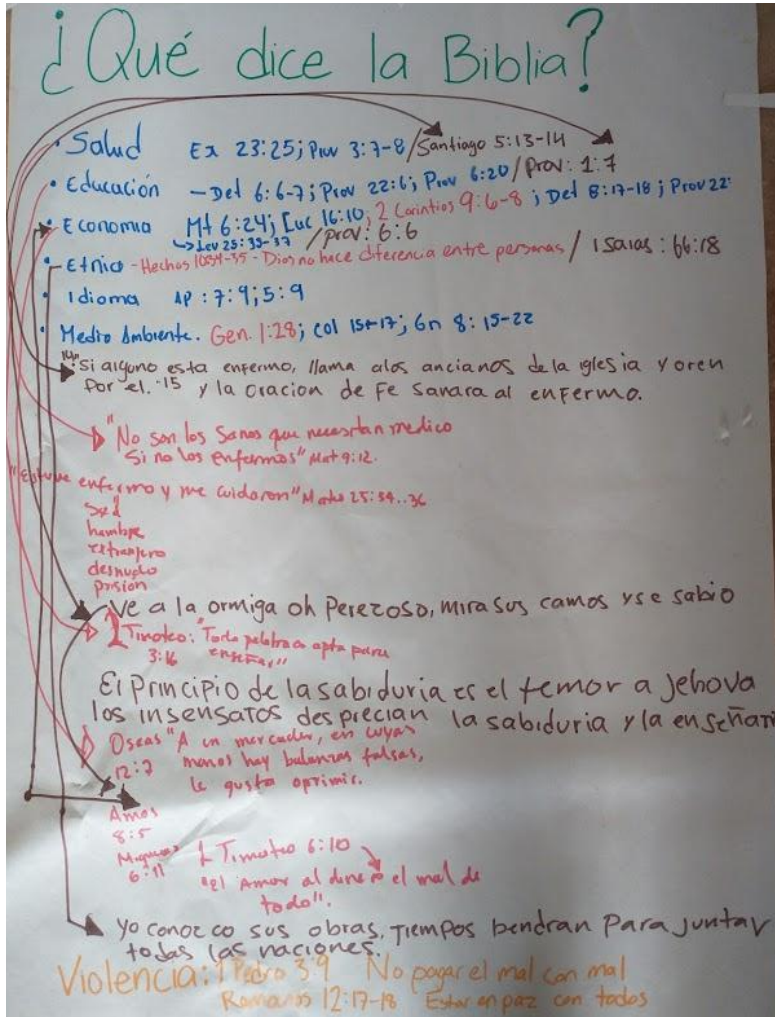 ¿Qué dice la Biblia?
• Salud Ex 23:25; Prov 3:7-8/Santiago 5:13-14
• Educación - Det 6:6-7; Prov 22:6; Prov 6:20/Prov: 1:7
• Economia Mt 6:24; Luc 16:10; 2 Corintios 9:6-8; Det 8:17-18; Prov 22:
Lev 25:35-37 /prov: 6:6
• Etnico - Hechos 10:34-35 - Dios no hace diferencia entre personas / Isaias: 66:18
• Idioma AP: 7:9; 5:9
• Medio Ambiente. Gen. 1:28; Col 15+17; Gn 8: 15-22
14 "Si alguno esta enfermo, llama alos ancianos de la iglesia y oren
por el. -15 y la oracion de Fe Sanara al enfermo.
"No son los Sanos que necesitan medico
Si no los enfermos" Mat 9:12.
"Estuve enfermo y me cuidaron" Mateo 25:34..36
Sed
hambre
extranjero
desnudo
prision
Ve a la ormiga oh Perezoso, mira sus camos y se sabio
2 Timoteo: "Toda palabra es apta para
3:16 enseñar"
El Principio de la sabiduria es el temor a Jehova
los insensatos desprecian la sabiduria y la enseñan
Oseas "A un mercader, en cuyas
12:7 manos hay balanzas falsas,
le gusta oprimir.
Amos
8:5
Miqueas 1 Timoteo 6:10
6:11 "el Amor al dinero el mal de
todo".
Yo conozco sus obras. Tiempos bendran Para Juntar
todas las naciones.
Violencia: 1 Pedro 3:9 No pagar el mal con mal
Romanos 12:17-18 Estar en paz con todos